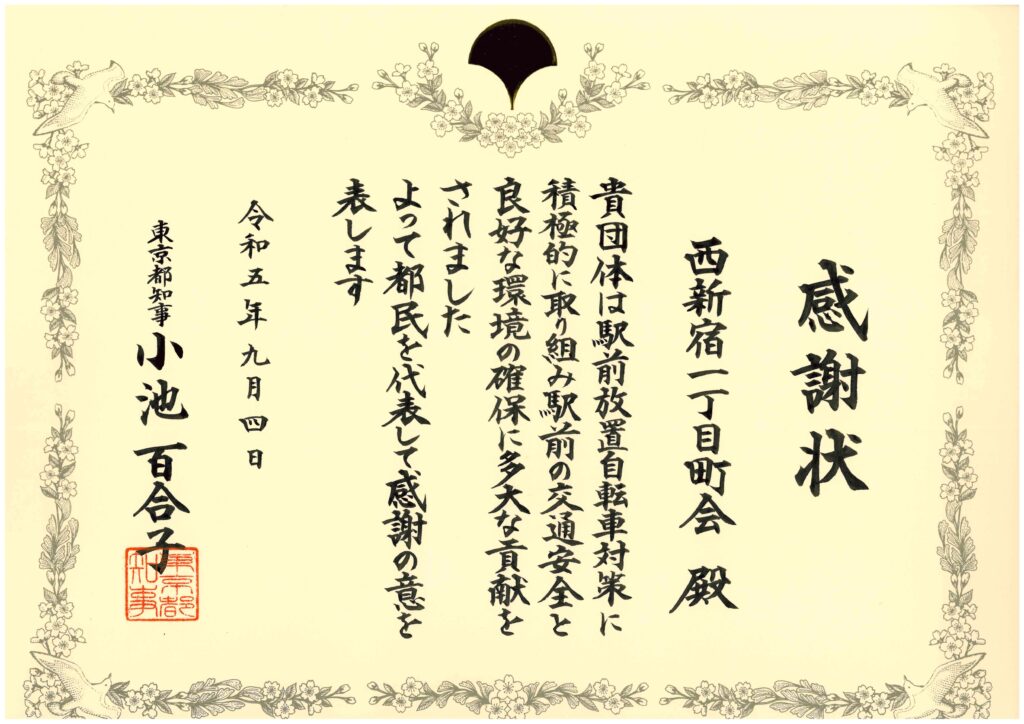 感謝状
西新宿一丁目町会 殿
貴団体は駅前放置自転車対策に
積極的に取り組み駅前の交通安全と
良好な環境の確保に多大な貢献を
されました
よって都民を代表して感謝の意を
表します
令和五年九月四日
東京都知事 小池 百合子
東京都
知事